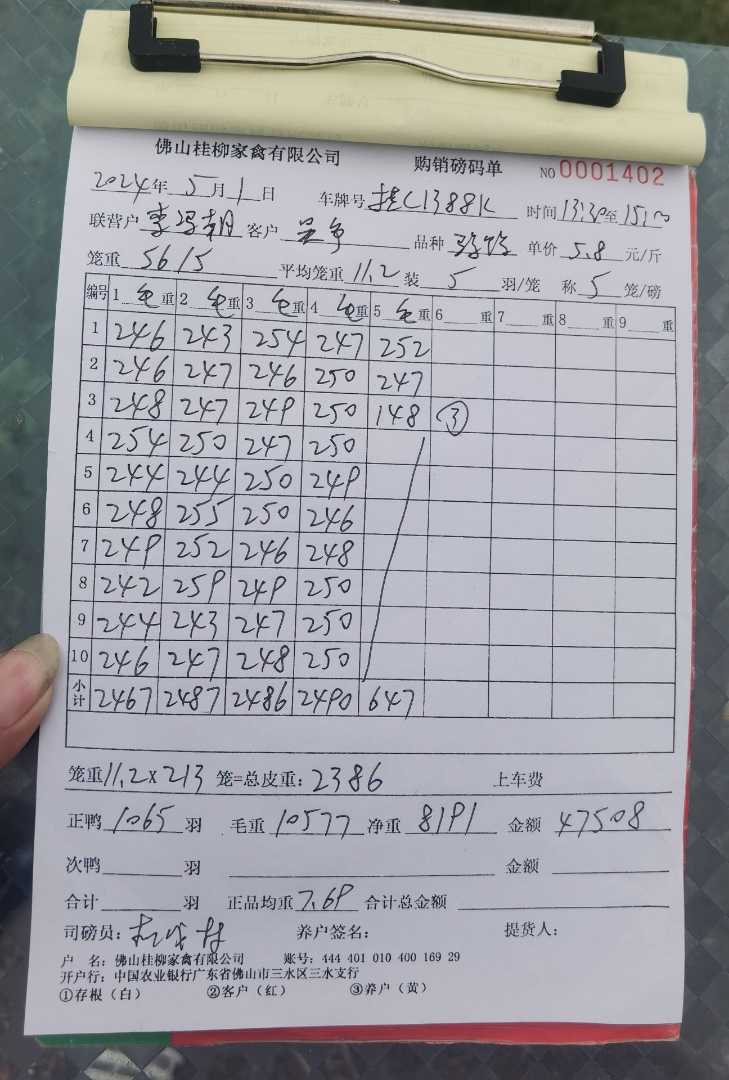 佛山桂柳家禽有限公司 购销磅码单 NO 0001402
2024年 5月 1日 车牌号 桂C1388K 时间 13:30至15:00
联营户 李 朝 客户 吴争 品种 单价 5.8 元/斤
笼重 56/5 平均笼重 11.2 装 5 羽/笼 称 5 笼/磅
编号 1 毛重 2 毛重 3 毛重 4 毛重 5 毛重 6 重 7 重 8 重 9 重
1 246 243 254 247 252
2 246 247 246 250 247
3 248 247 249 250 148 ③
4 254 250 247 250
5 244 244 250 249
6 248 255 250 246
7 249 252 246 248
8 242 259 249 250
9 244 243 247 250
10 246 247 248 250
小计 2467 2487 2486 2490 647
笼重 11.2×213 笼=总皮重: 2386 上车费
正鸭 1065 羽 毛重 10577 净重 8191 金额 47508
次鸭 羽 金额
合计 羽 正品均重 7.69 合计总金额
司磅员: 养户签名: 提货人:
户 名: 佛山桂柳家禽有限公司 账号: 444 401 010 400 169 29
开户行: 中国农业银行广东省佛山市三水区三水支行
①存根(白) ②客户(红) ③养户(黄)